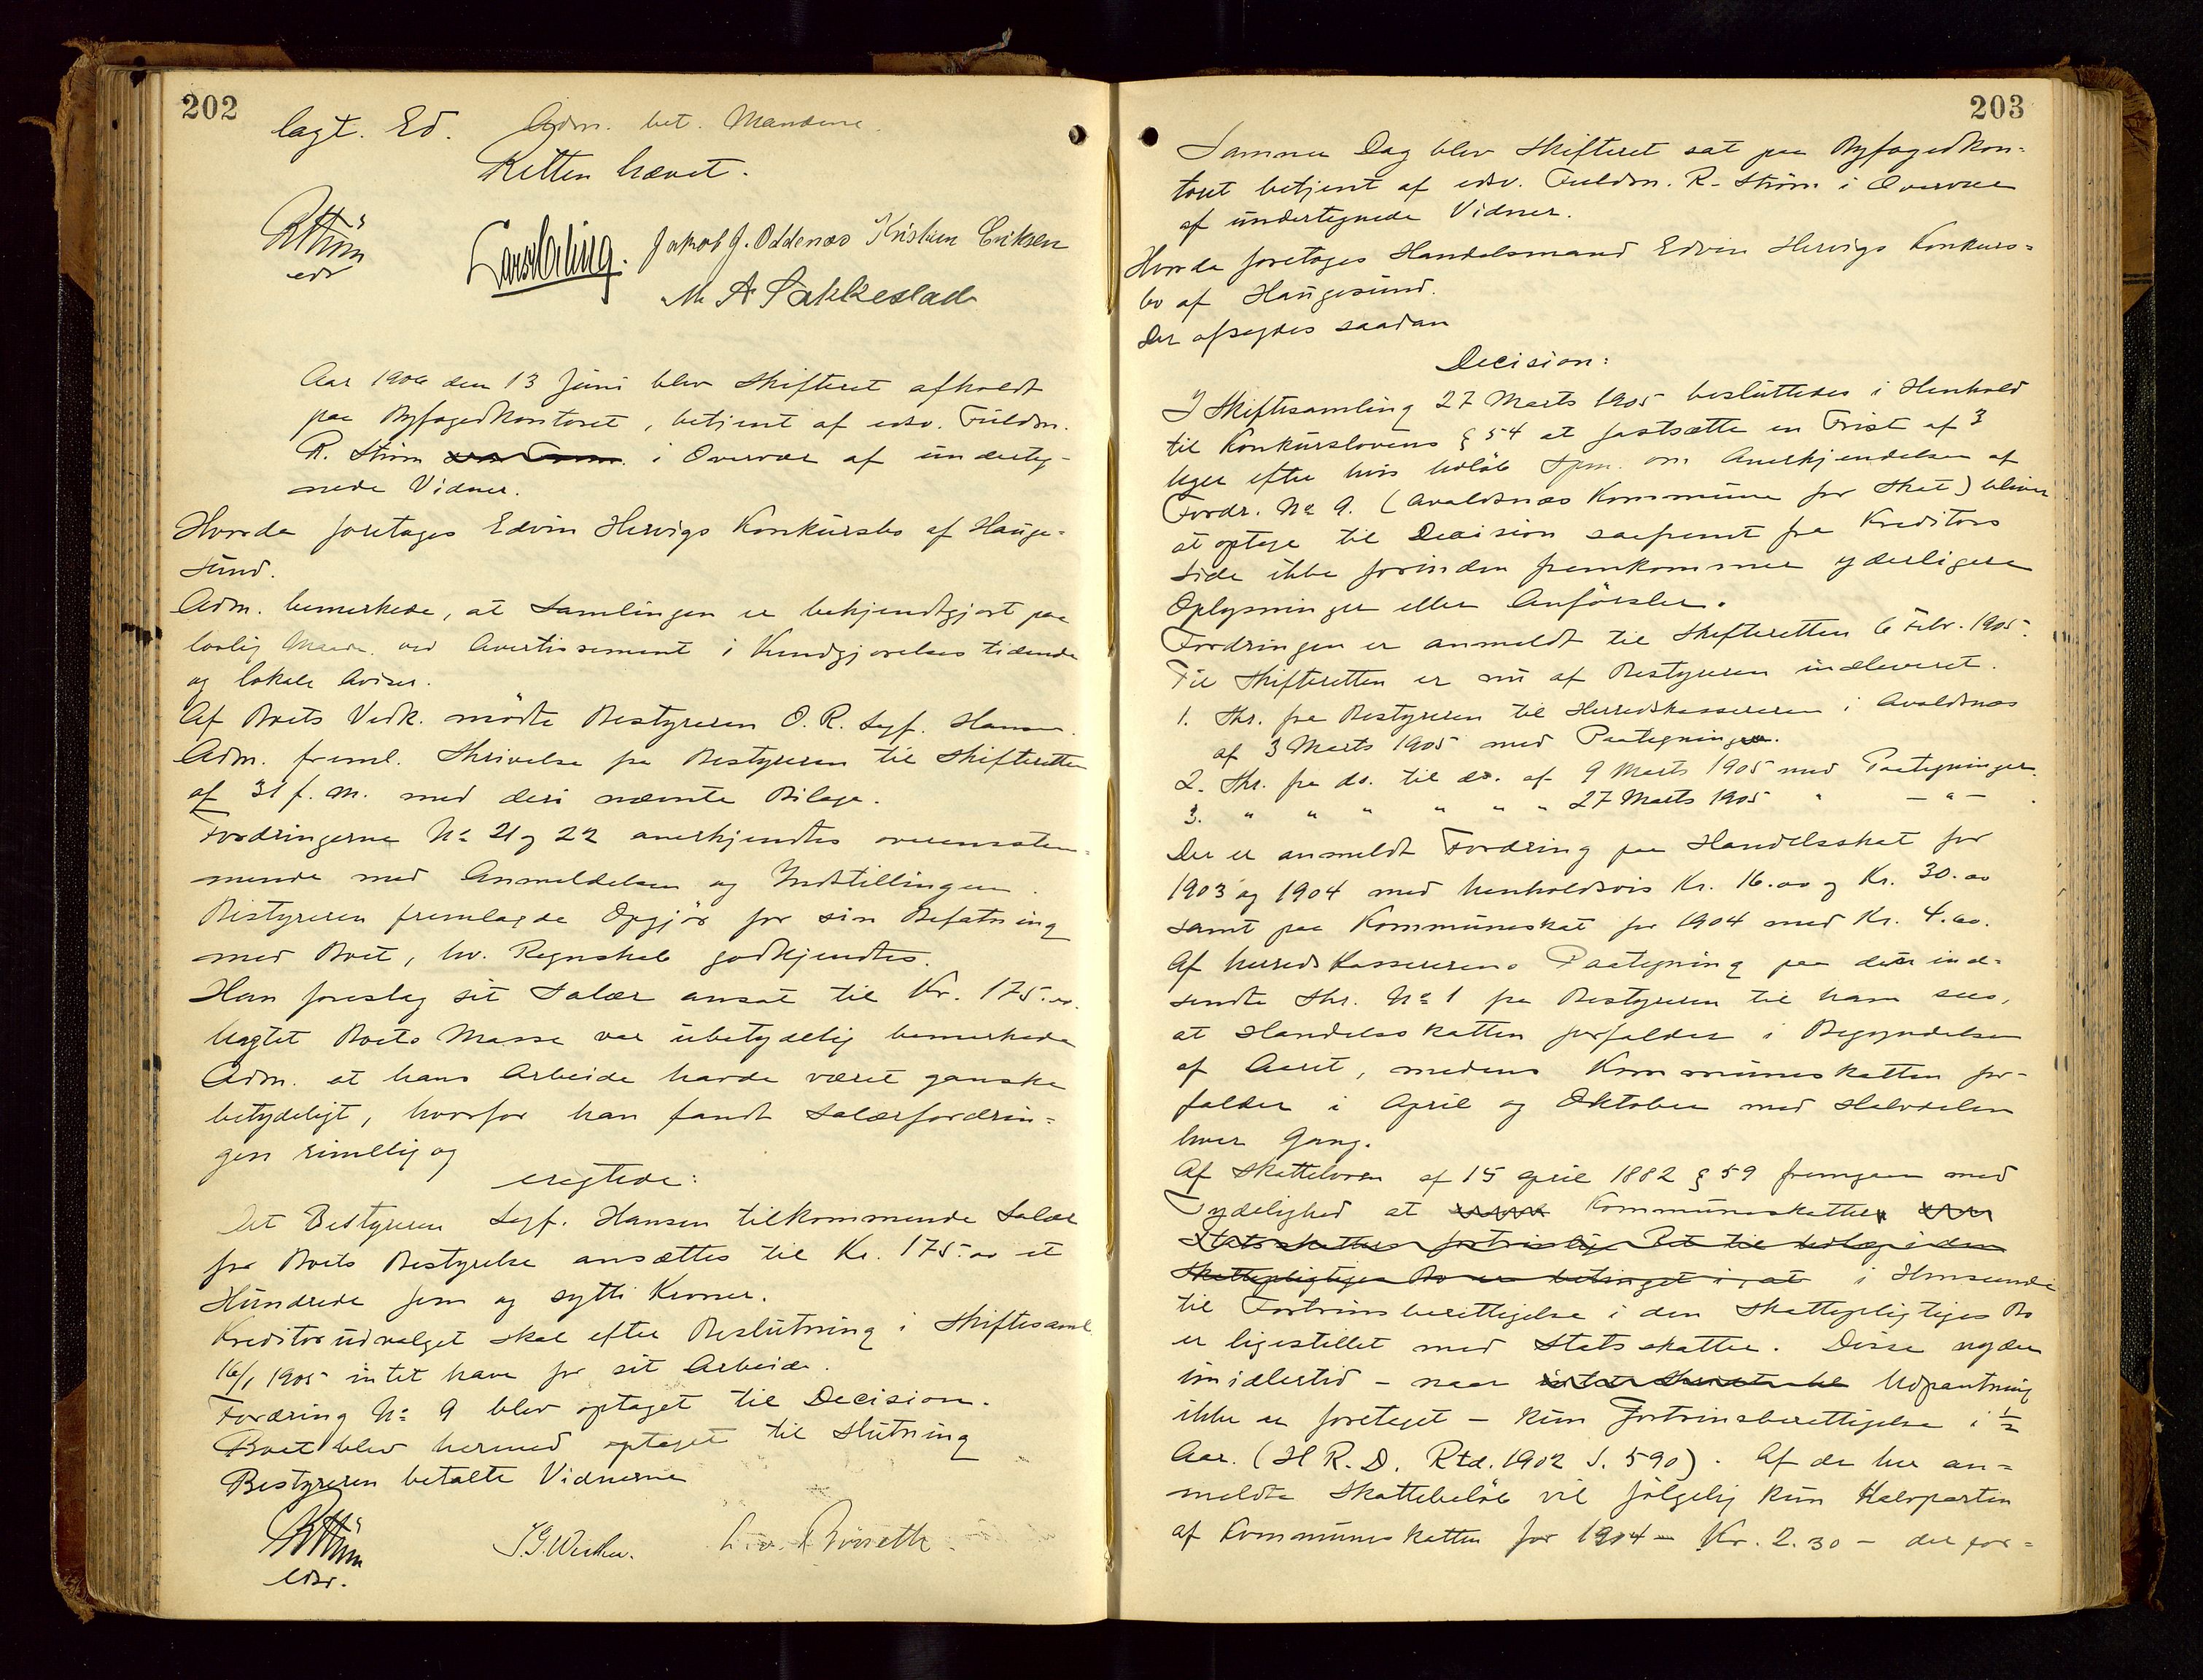 202
lagt. Ed. Adm. bet. Mændene.
Retten hævet.
RStröm Lars Jakob J. Oddenæs Kristian Eriksen
edv M A Sakkestad
Aar 1906 den 13 Juni blev Skifteret afholdt
paa Byfogedkontoret, betjent af edsv. Fuldm.
R. Ström i Overvær af underteg-
nede Vidner.
Hvorda foretoges Edvin Hervigs Konkursbo af Hauge-
sund.
Adm. bemerkede, at Samlingen er bekjendtgjort paa
lovlig Maade ved Avertissement i Kundgjørelses tidende
og lokale Aviser.
Af Boets Vedk. mödte Bestyreren O. R. Sigf. Hansen.
Adm. freml. Skrivelse fra Bestyreren til Skifteretten
af 31 f. M. med deri nævnte Bilage.
Fordringerne No 21 og 22 anerkjendtes overensstem-
mende med Anmeldelsen og Indstillingen.
Bestyreren fremlagde Opgjör for sin Befatning
med Boet, hv. Regnskab godkjendtes.
Han foreslog sit Salær ansat til Kr. 175.00.
Uagtet Boets Masse var ubetydelig bemerkede
Adm. at hans Arbeide havde været ganske
betydeligt, hvorfor han fandt Salærfordrin-
gen rimelig og
eragtede:
Det Bestyreren Sigf. Hansen tilkommende Salær
for Boets Bestyrelse ansættes til Kr. 175.00 et
Hundrede fem og sytti Kroner.
Kreditorudvalget skal efter Beslutning i Skiftesaml.
16/1 1905 intet have for sit Arbeide.
Fordring No 9 blev optaget til Decision.
Boet blev hermed optaget til Slutning
Bestyreren betalte Vidnerne
RStröm
edsv.
203
Samme Dag blev Skifteret sat paa Byfogedkon-
toret betjent af edsv. Fuldm. R. Ström i Overvær
af undertegnede Vidner.
Hvorda foretoges Handelsmand Edvin Hervigs Konkurs-
bo af Haugesund.
Der afsagdes saadan
Decision:
I Skiftesamling 27 Marts 1905 besluttedes i Henhold
til Konkurslovens § 54 at fastsætte en Frist af 3
Uger efter hvis Udløb Spm. om Anerkjendelsen af
Fordr. No 9. (Avaldsnæs Kommune for Skat) bliver
at optage til Decision saafremt fra Kreditors
Side ikke forinden fremkommer yderligere
Oplysninger eller Anförsler.
Fordringen er anmeldt til Skifteretten 6 Febr. 1905.
Til Skifteretten er nu af Bestyreren indleveret.
1. Skr. fra Bestyreren til Herredskassereren i Avaldsnæs
af 3 Marts 1905 med Paategning.
2. Skr. fra do. til do. af 9 Marts 1905 med Paategninger.
3. " " " " " " 27 Marts 1905 " - " - .
Der er anmeldt Fordring paa Handelsskat for
1903 og 1904 med henholdsvis Kr. 16.00 og Kr. 30.00
samt paa Kommuneskat for 1904 med Kr. 4.60.
Af herredskassererens Paategning paa den ind-
sendte Skr. No 1 fra Bestyreren til ham sees,
at Handelsskatten forfalder i Begyndelsen
af Aaret, medens Kommuneskatten for-
falder i April og Oktober med Halvdelen
hver Gang.
Af Skatteloven af 15 April 1882 § 59 fremgaar med
Tydelighed at Kommuneskatten
Statsskattens fortrinslige Ret til Udlæg i den
Skattepligtiges Bo er betinget i, at i Henseende
til Fortrinsberettigelse i den Skattepligtiges Bo
er ligestillet med Statsskatter. Disse nyder
imidlertid - naar Udpantning
ikke er foretaget - kun Fortrinsberettigelse i 1/2
Aar. (H R. D. Rtd. 1902 S. 590). Af de her an-
meldte Skattebeløb vil fölgelig kun Halvparten
af Kommuneskatten for 1904 - Kr. 2.30 - der for-